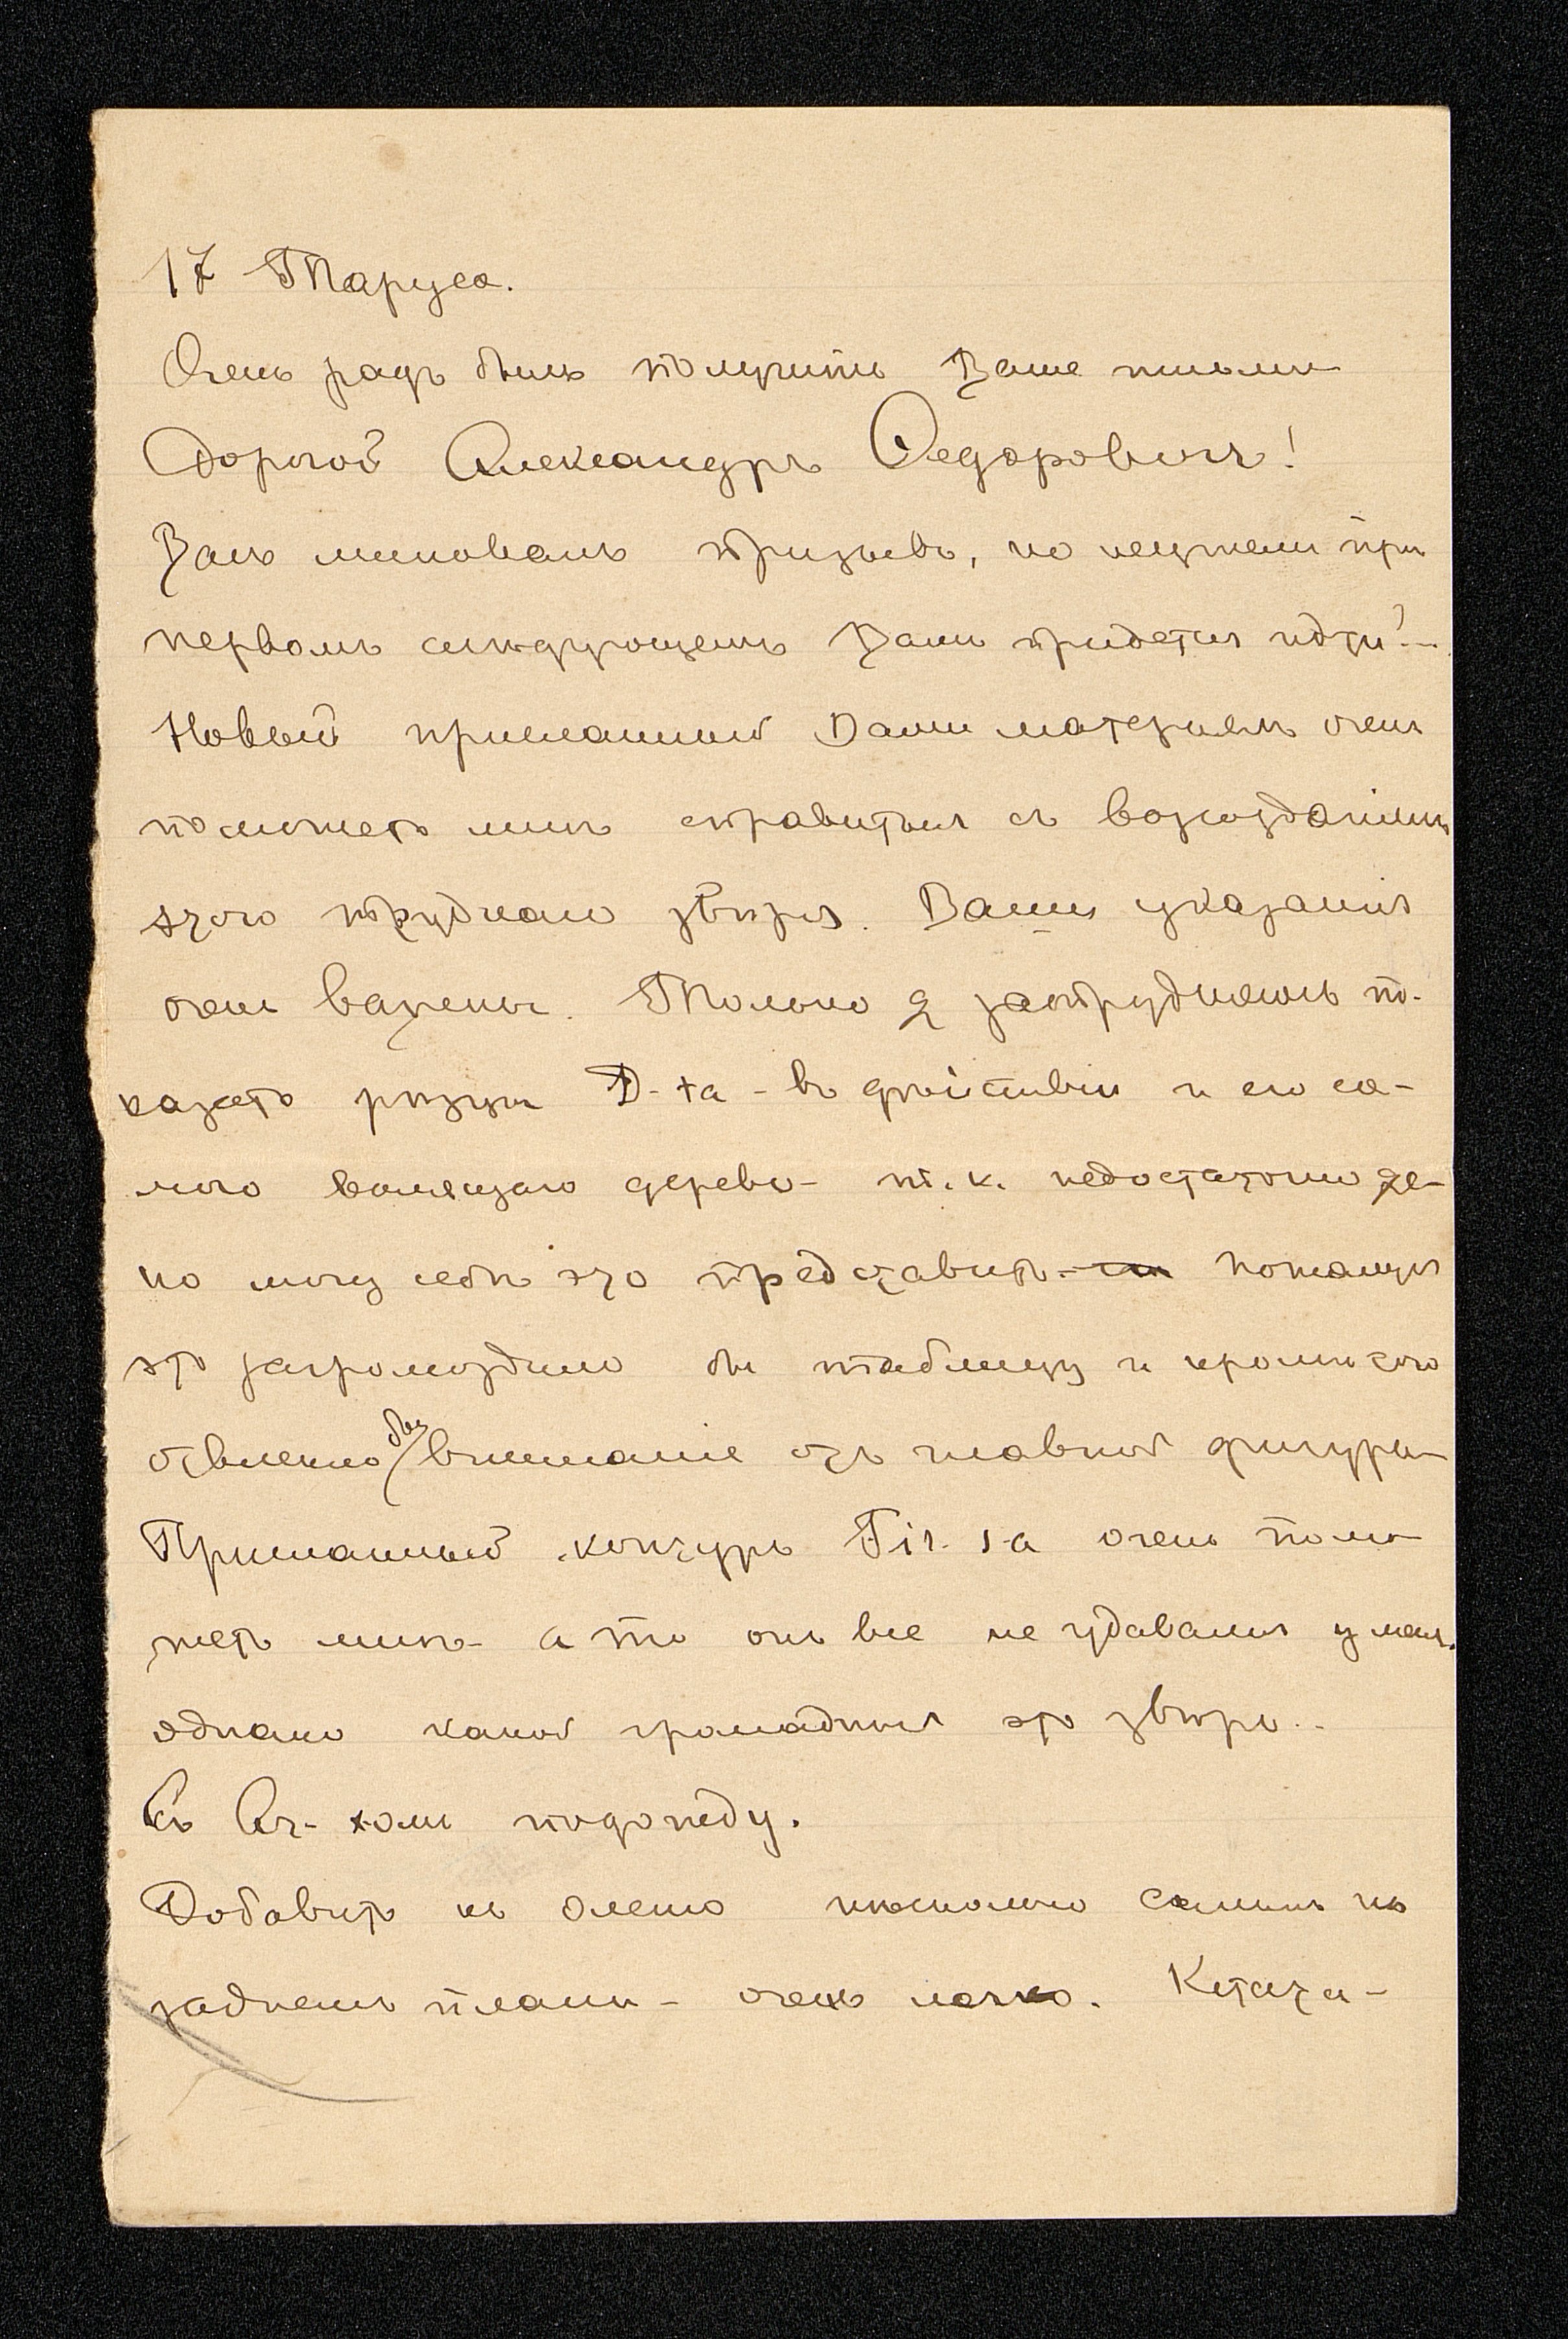 17 Таруса.
Очень радъ былъ получить Ваше письмо
Дорогой Александръ Федоровичъ!
Васъ миновалъ призывъ, но неужели при
первомъ слѣдующемъ Вамъ придется идти?..
Новый присланный Вами матерьялъ очень
поможетъ мнѣ справиться съ возсозданіемъ
этого труднаго звѣря. Ваши указанія
очень важны. Только я затрудняюсь по-
казать рѣзцы D-ха - въ дѣйствіи и его са-
мого валящаго дерево - т.к. недостаточно яс-
но могу себѣ это представить - Пожалуй
это загромоздило бы таблицу и кромѣ того
отвлекло бы вниманіе отъ главной фигуры -
Присланный контуръ Tit. s-а очень помо-
жетъ мнѣ - а то онъ все не удавался у меня.
однако какой громадный это звѣрь..
Съ Ar-хомъ подожду.
Добавить къ Оленю нѣсколько самокъ на
заднемъ планѣ - очень легко. Кстати -